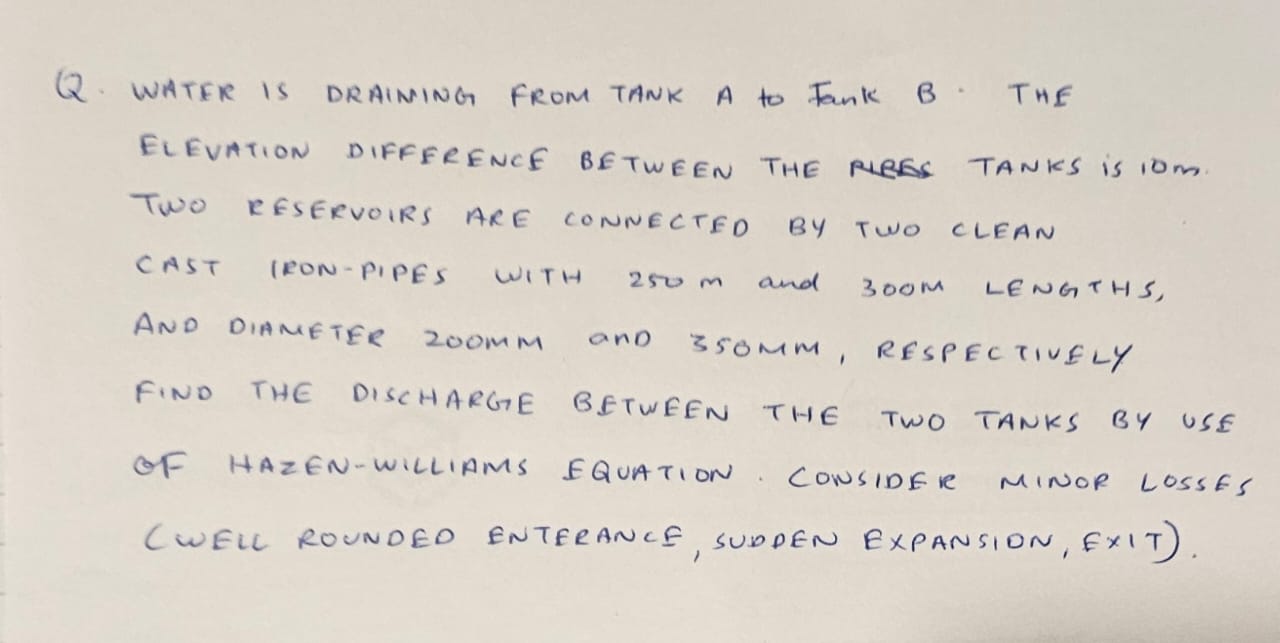 Q. WATER IS DRAINING FROM TANK A to Tank B. THE
ELEVATION DIFFERENCE BETWEEN THE TANKS is 10m.
TWO RESERVOIRS ARE CONNECTED BY TWO CLEAN
CAST IRON-PIPES WITH 250 m and 300M LENGTHS,
AND DIAMETER 200MM and 350MM, RESPECTIVELY
FIND THE DISCHARGE BETWEEN THE TWO TANKS BY USE
OF HAZEN-WILLIAMS EQUATION. CONSIDER MINOR LOSSES
(WELL ROUNDED ENTERANCE, SUDDEN EXPANSION, EXIT).